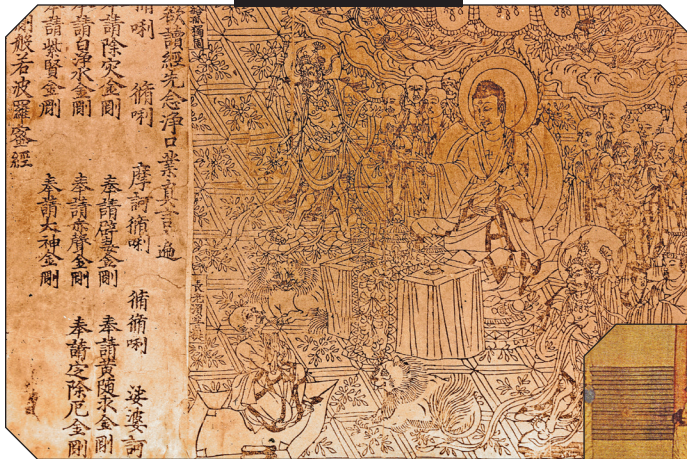 孤獨園
長老須菩
欲讀經先念淨口業真言一遍
唎 脩唎 摩訶脩唎 脩脩唎 娑婆訶
請除灾金剛 奉請辟毒金剛 奉請黃隨求金剛
請白淨水金剛 奉請赤聲金剛 奉請定除厄金剛
請紫賢金剛 奉請大神金剛
般若波羅蜜經